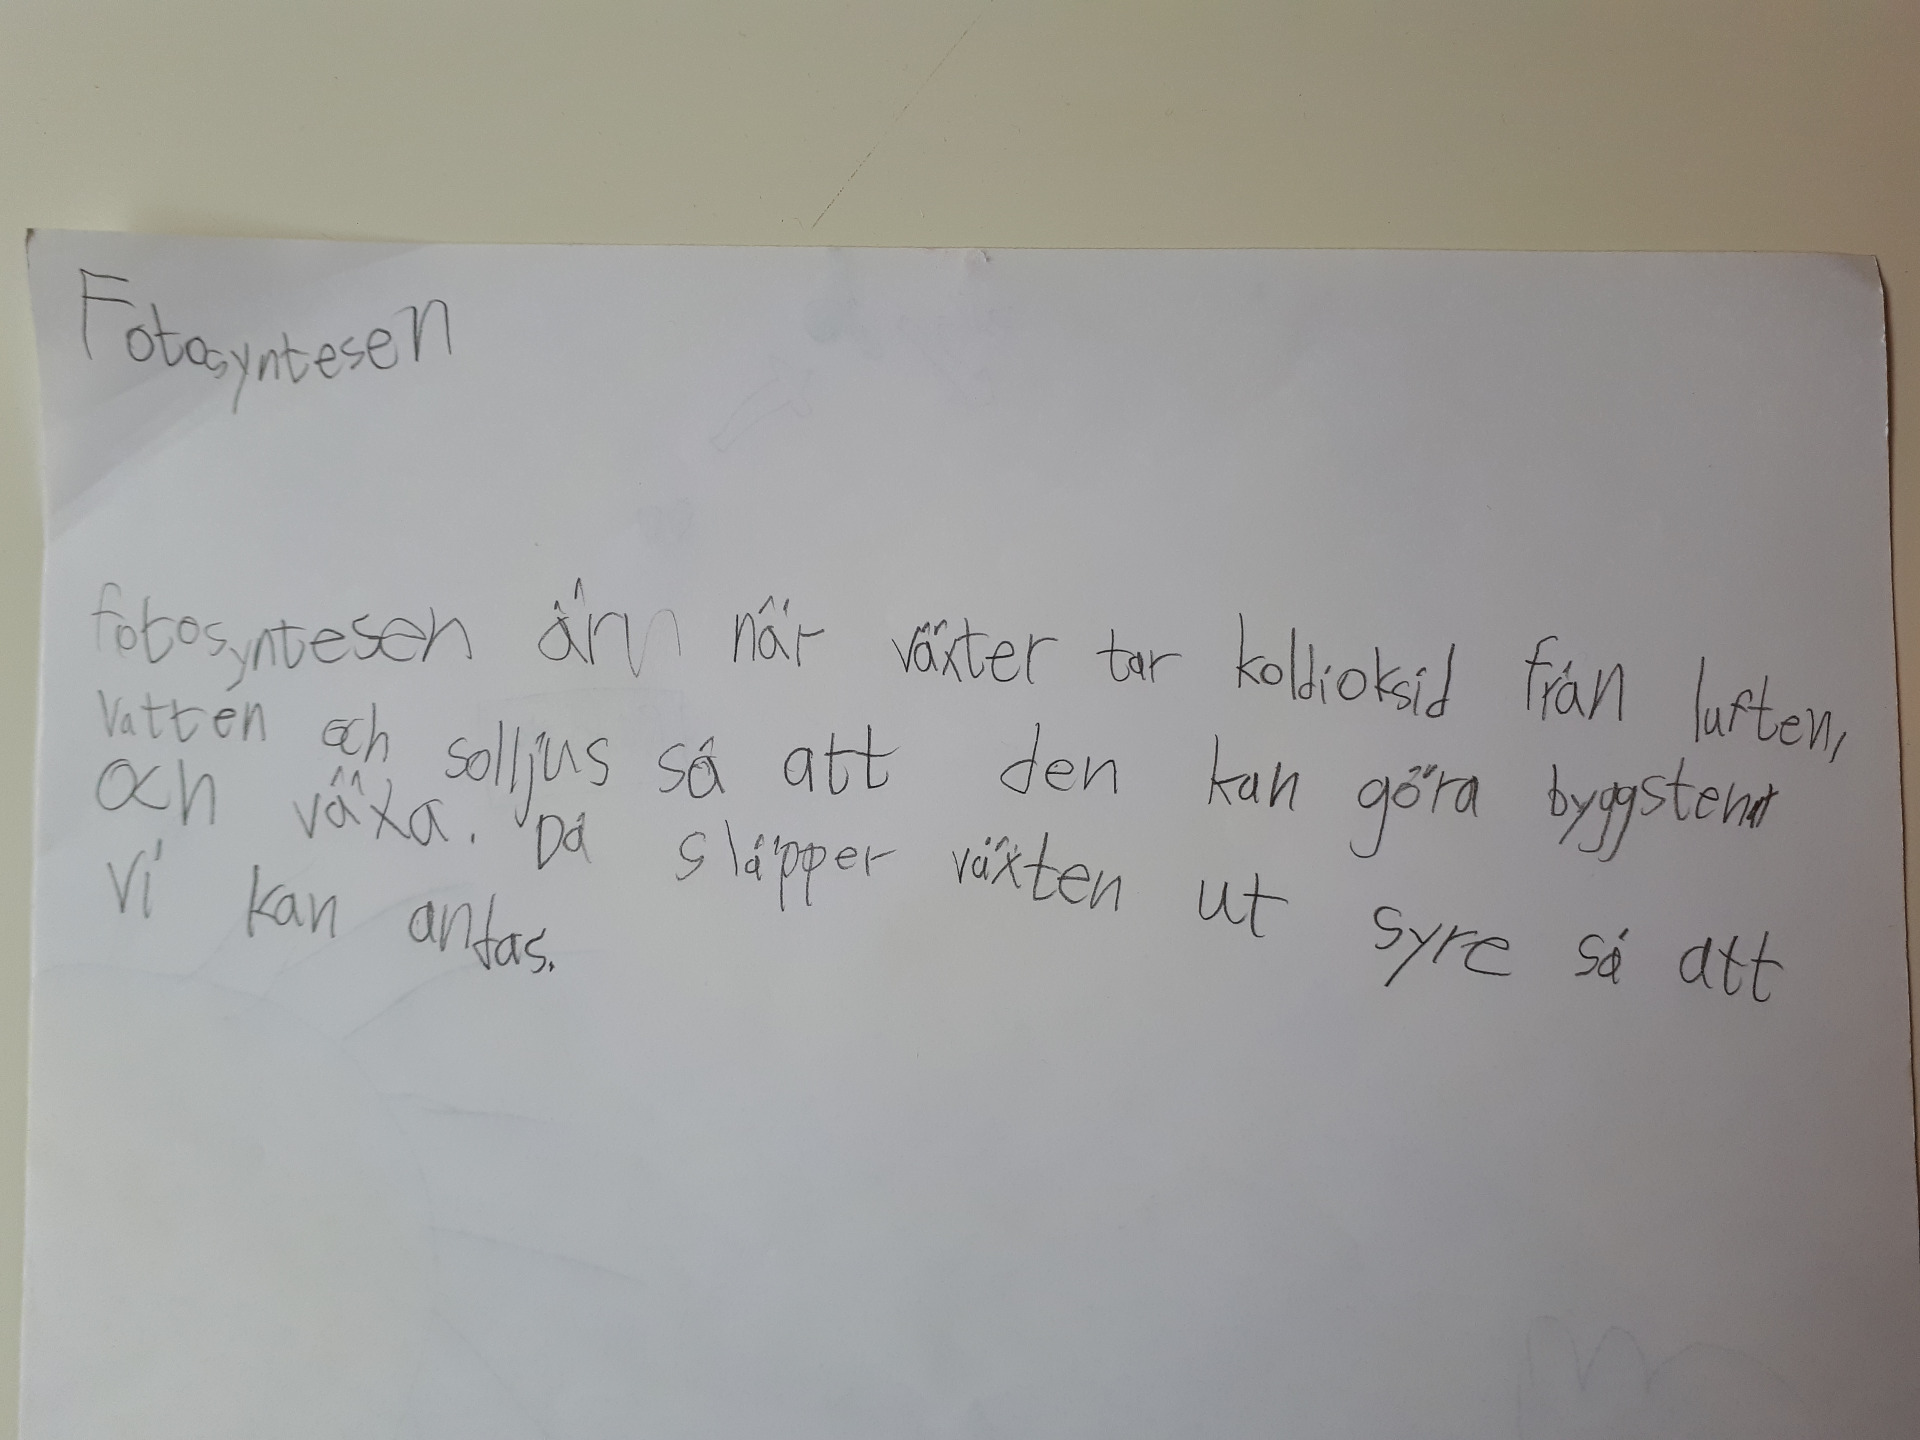 Fotosyntesen
fotosyntesen är när växter tar koldioksid från luften,
vatten och solljus så att den kan göra byggstenar
och växa. Då släpper växten ut syre så att
vi kan antas.